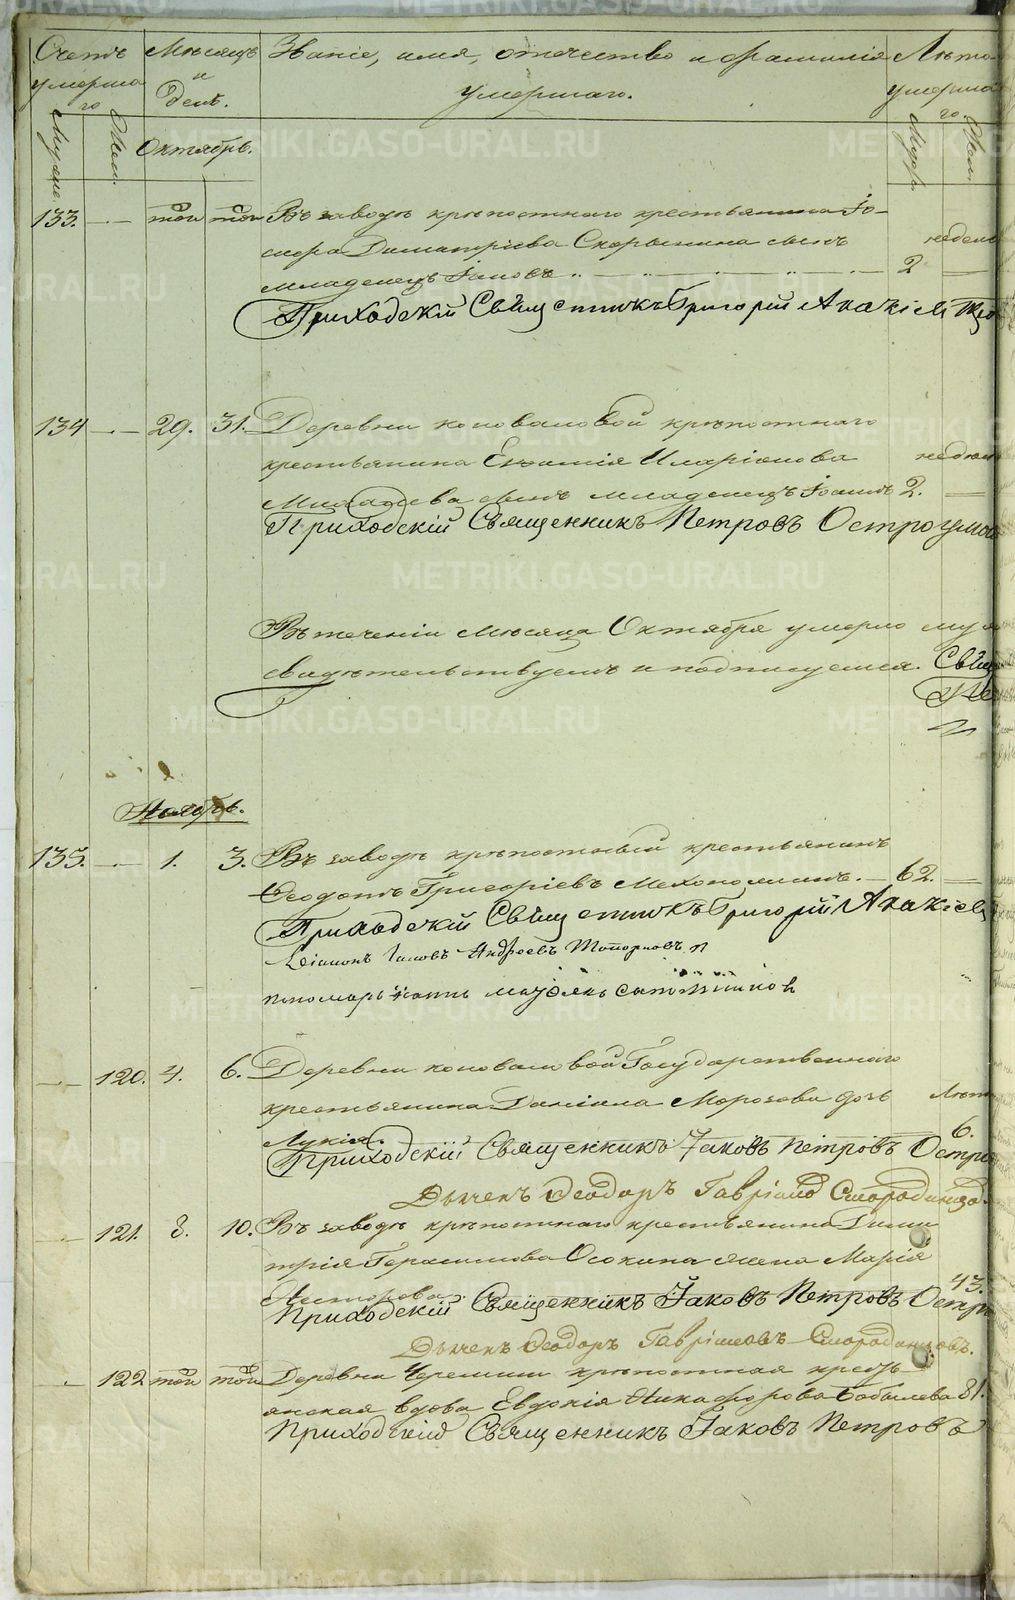 Счетъ Мѣсяцъ Званіе, имя, отечество и фамилія Лѣта
умерша и умершаго. умерша
го день. го.
Муж. Жен. Октябрь. Муж. Жен.
133. — той той Въ заводѣ крѣпостнаго крестьянина Іо-
сифа Димитріева Скорынина сынъ недели
младенецъ Іаковъ 2
Приходскій Свящ Григорій
134 — 29. 31. Деревни Коноваловой крѣпостнаго
крестьянина Евѳимія Иларіонова недели
сынъ младенецъ Іоаннъ 2.
Приходскій Священникъ Петровъ Остроумов
Въ теченіи мѣсяца Октября умерло муж
свидѣтельствуемъ и подписуемся.
Ноябрь.
135. — 1. 3. Въ заводѣ крѣпостный крестьянинъ
Ѳеодотъ Григоріевъ — 62.
Приходскій Свящ Григорій
Андреевъ Топорковъ и
пономарь
— 120. 4. 6. Деревни Коноваловой Государственнаго
крестьянина Даніила Морозова дочь Лѣтъ
Лукія. 6.
Приходскій Священникъ Іаковъ Петровъ Остро
Дьячекъ Ѳеодоръ Гавріилов Смородинцов.
— 121. 8. 10. Въ заводѣ крѣпостнаго крестьянина Дими
трія Герасимова Осокина жена Марія
Несторова. 43.
Приходскій Священникъ Іаковъ Петровъ Остро
Дьячекъ Ѳеодоръ Гавріиловъ Смородинцовъ.
— 122 той той Деревни Черемши крѣпостная кресть-
янская вдова Евдокія Никифорова Бобылева 81.
Приходскій Священникъ Іаковъ Петровъ
METRIKI.GASO-URAL.RU